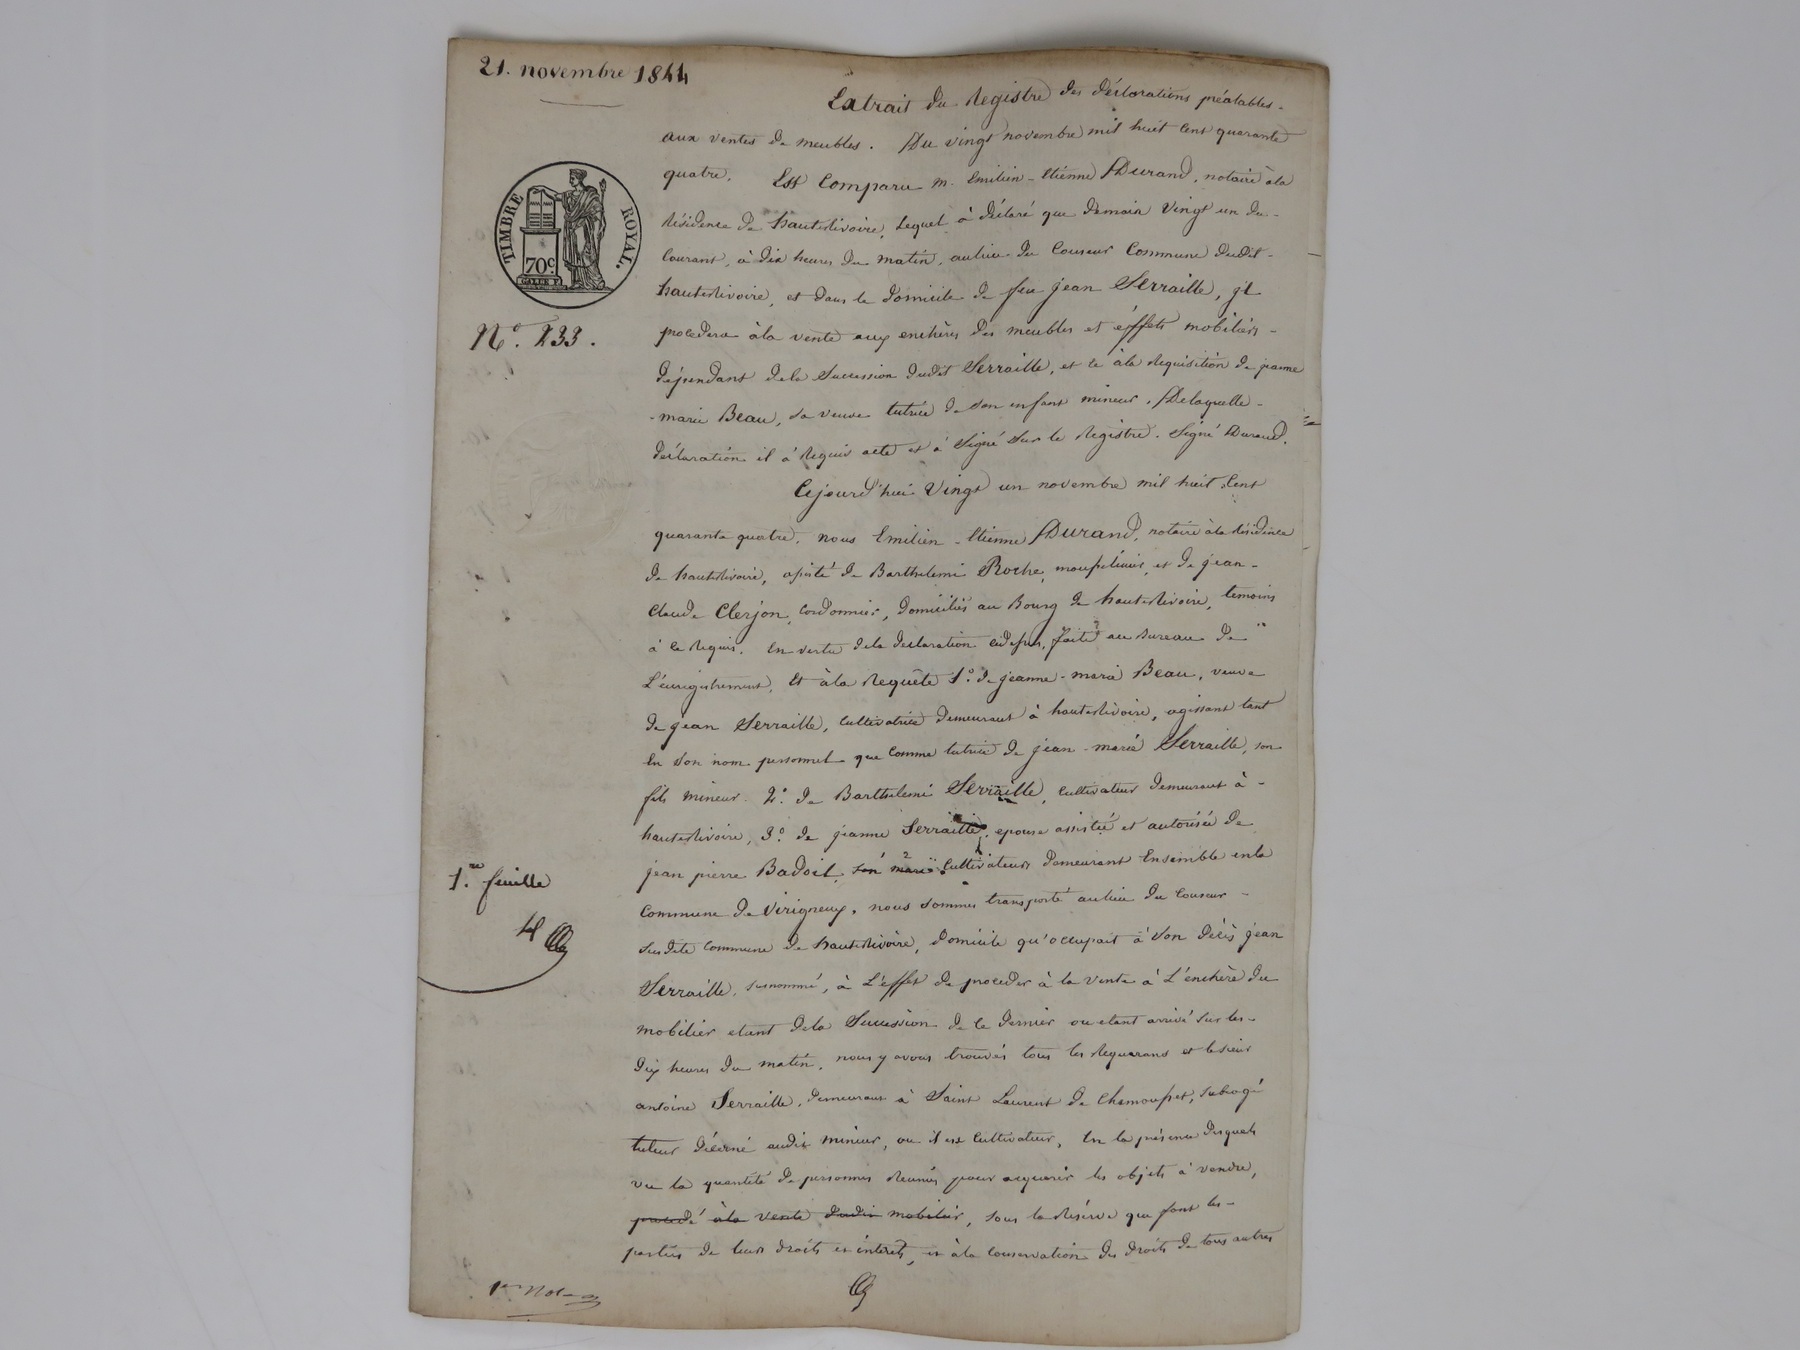 21. novembre 1844
Extrait du Registre des déclarations préalables
aux ventes de meubles. Du vingt novembre mil huit cent quarante
quatre. Est Comparu m. Emilien-Etienne Durand, notaire à la
TIMBRE ROYAL.
70c
résidence de hauterivoire, Lequel à déclaré que demain vingt un du
Courant, à dix heures du matin, au lieu du Couseur Commune dudit
hauterivoire, et dans le domicile de feu jean Serraille, il
N°. 233.
procedera à la vente aux enchères des meubles et éffets mobiliers
dépendant de la Succession dudit Serraille, et ce à la Requisition de jeanne
-marie Beau, sa veuve tutrice de son enfant mineur. De laquelle
déclaration il à Requis acte et à Signé Sur le Registre. Signé Durand.
Cejourd'hui Vingt un novembre mil huit Cent
quarante quatre, nous Emilien-Etienne Durand, notaire à la résidence
de hauterivoire, assisté de Barthelemi Roche, et de jean-
Claude Clerjon, Cordonnier, domiciliés au Bourg de hauterivoire, temoins
à ce Requis. En vertu de la declaration cidessus, faite au Bureau de
L'enregistrement, Et à la Requête 1°. de jeanne-marie Beau, veuve
de jean Serraille, Cultivatrice demeurant à hauterivoire, agissant tant
En Son nom personnel que Comme tutrice de jean-marie Serraille, son
fils mineur. 2°. de Barthelemi Serraille, Cultivateur demeurant à
hauterivoire, 3°. de jeanne Serraille, epouse assistée et autorisée de
jean pierre Badoil, son mari, Cultivateurs demeurant Ensemble en la
1.re feuille
Commune de Virigneux, nous Sommes transporté au lieu du Couseur
susdite Commune de hauterivoire, domicile qu'occupait à Son décès jean
Serraille, susnommé, à L'effet de proceder à la vente à L'enchère du
mobilier etant de la Succession de ce dernier ou etant arrivé Sur les
dix heures du matin, nous y avons trouvés tous les Requerans et le sieur
antoine Serraille, demeurant à Saint Laurent de Chamousset, Subrogé
tuteur décerné audit mineur, ou il est Cultivateur, En la présence desquels
vu la quantité de personnes Reunies pour acquerir les objets à vendre,
procedé à la vente dudit mobilier, sous la Réserve que font les
parties de leurs droits et intérets, et à la Conservation des droits de tous autres